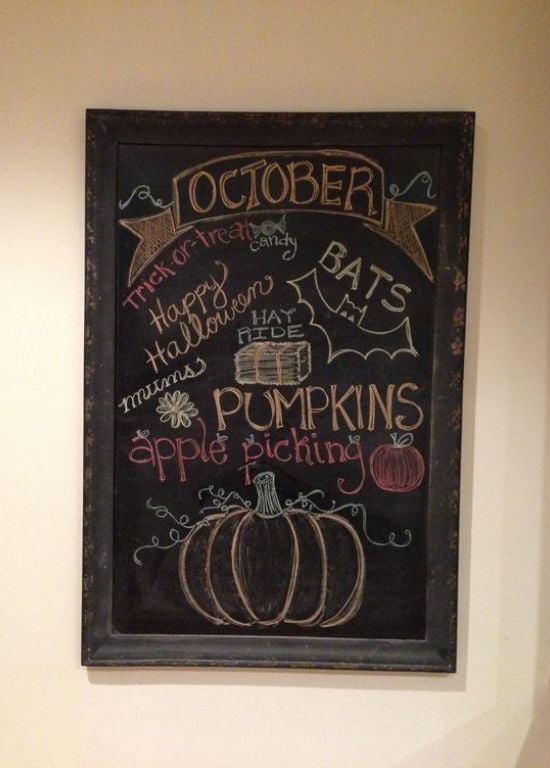 OCTOBER
Trick-or-treat
candy
BATS
Happy
Halloween
HAY
RIDE
mums
PUMPKINS
apple picking